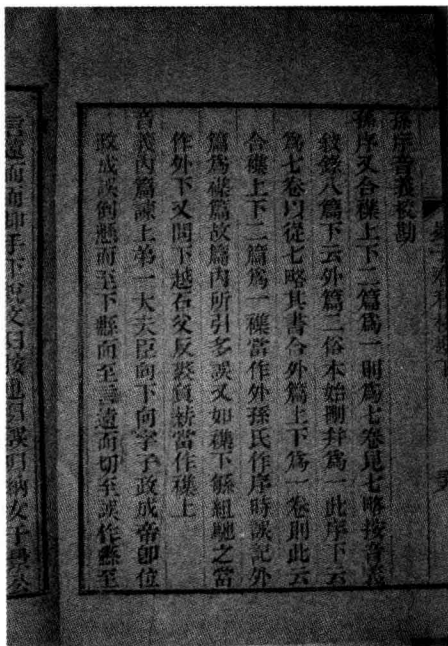 孫序音義校勘
孫序又合襍上下二篇爲一則爲七卷見七略按音義
敘錄八篇下云外篇二俗本始刪并爲一此序下云
爲七卷以從七略其書合外篇上下爲一卷則此云
合襍上下二篇爲一襍當作外孫氏作序時誤記外
篇爲襍篇故篇內所引多誤又如襍下繇組馳之當
作外下又問下越石父反裘負薪當作襍上
音義內篇諫上第一大夫臣向下向字子政成帝卽位
政成誤倒懸而至下縣而至言遠而切至誤作縣至
言遠而